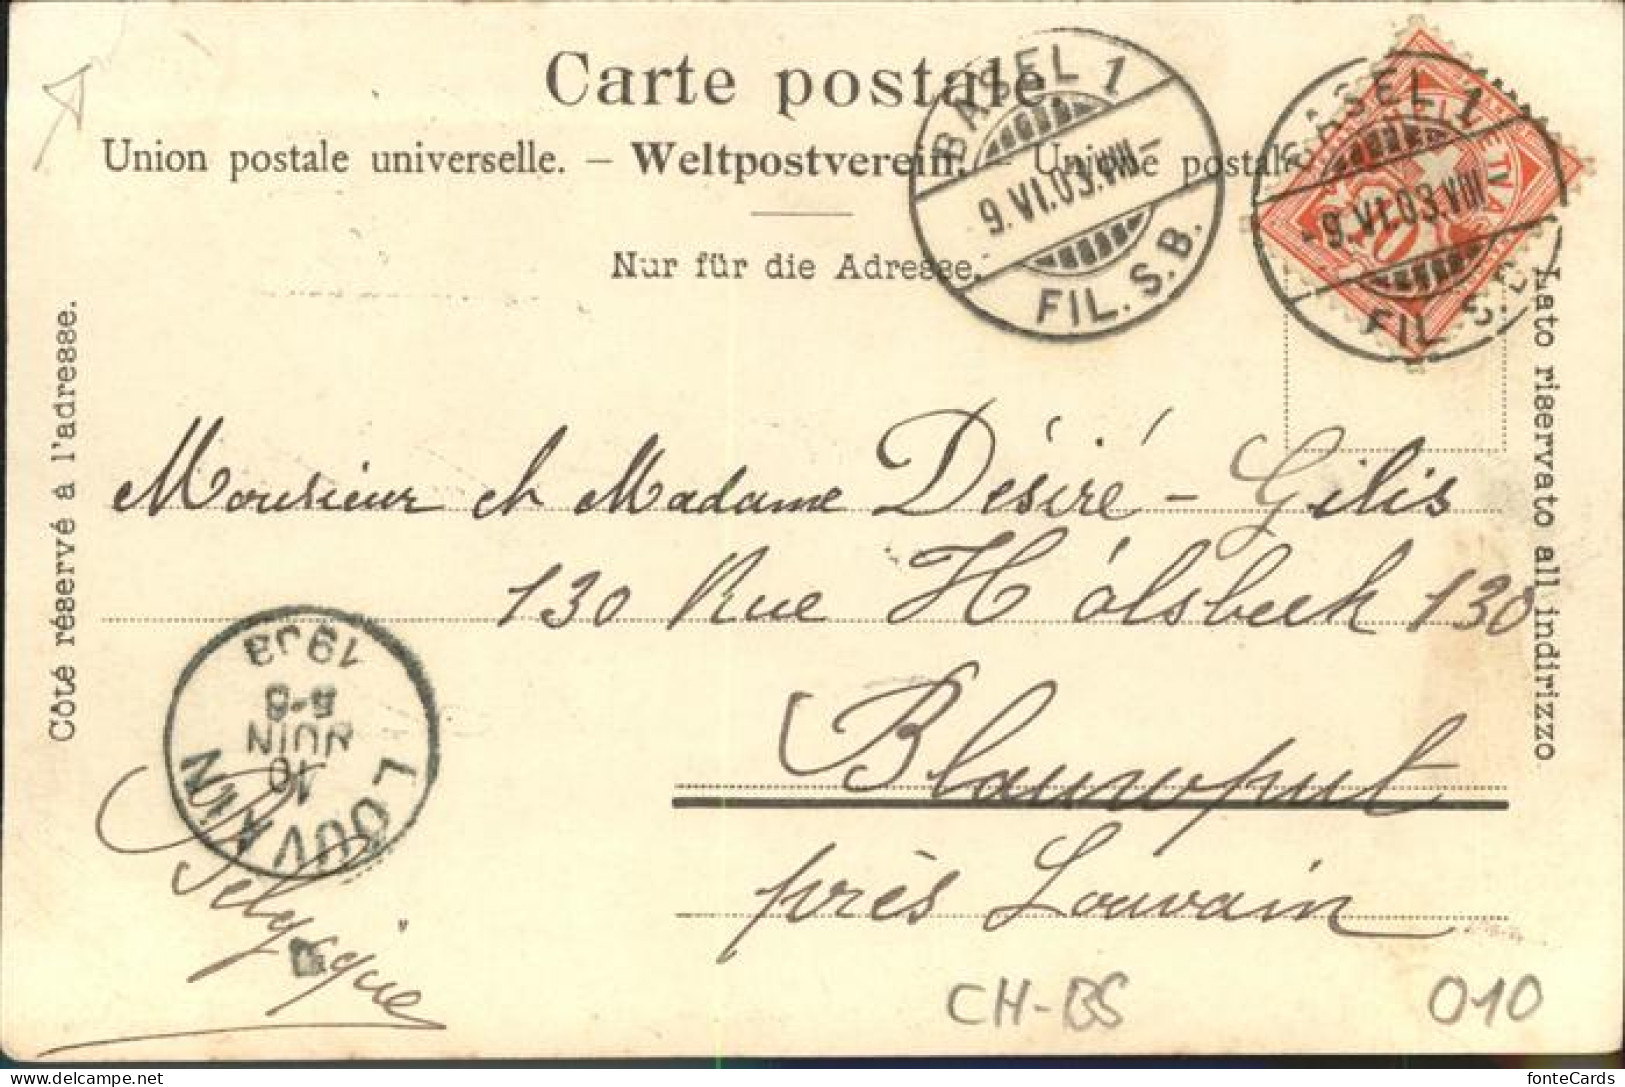 Carte postale.
Union postale universelle. – Weltpostverein. – Unione postale
Nur für die Adresse.
BASEL 1
9.VI.03.VIII–
FIL. S.B.
BASEL 1
-9.VI.03.VIII
FIL. S.B.
HELVETIA
10
Côté réservé à l'adresse.
Lato riservato all indirizzo
Monsieur et Madame Désiré-Gilis
130 Rue Hölsbeek 130
Blauwput
près Louvain
Belgique
LOUVAIN
10
JUIN
5-6
1903
CH-BS
010
fonteCards